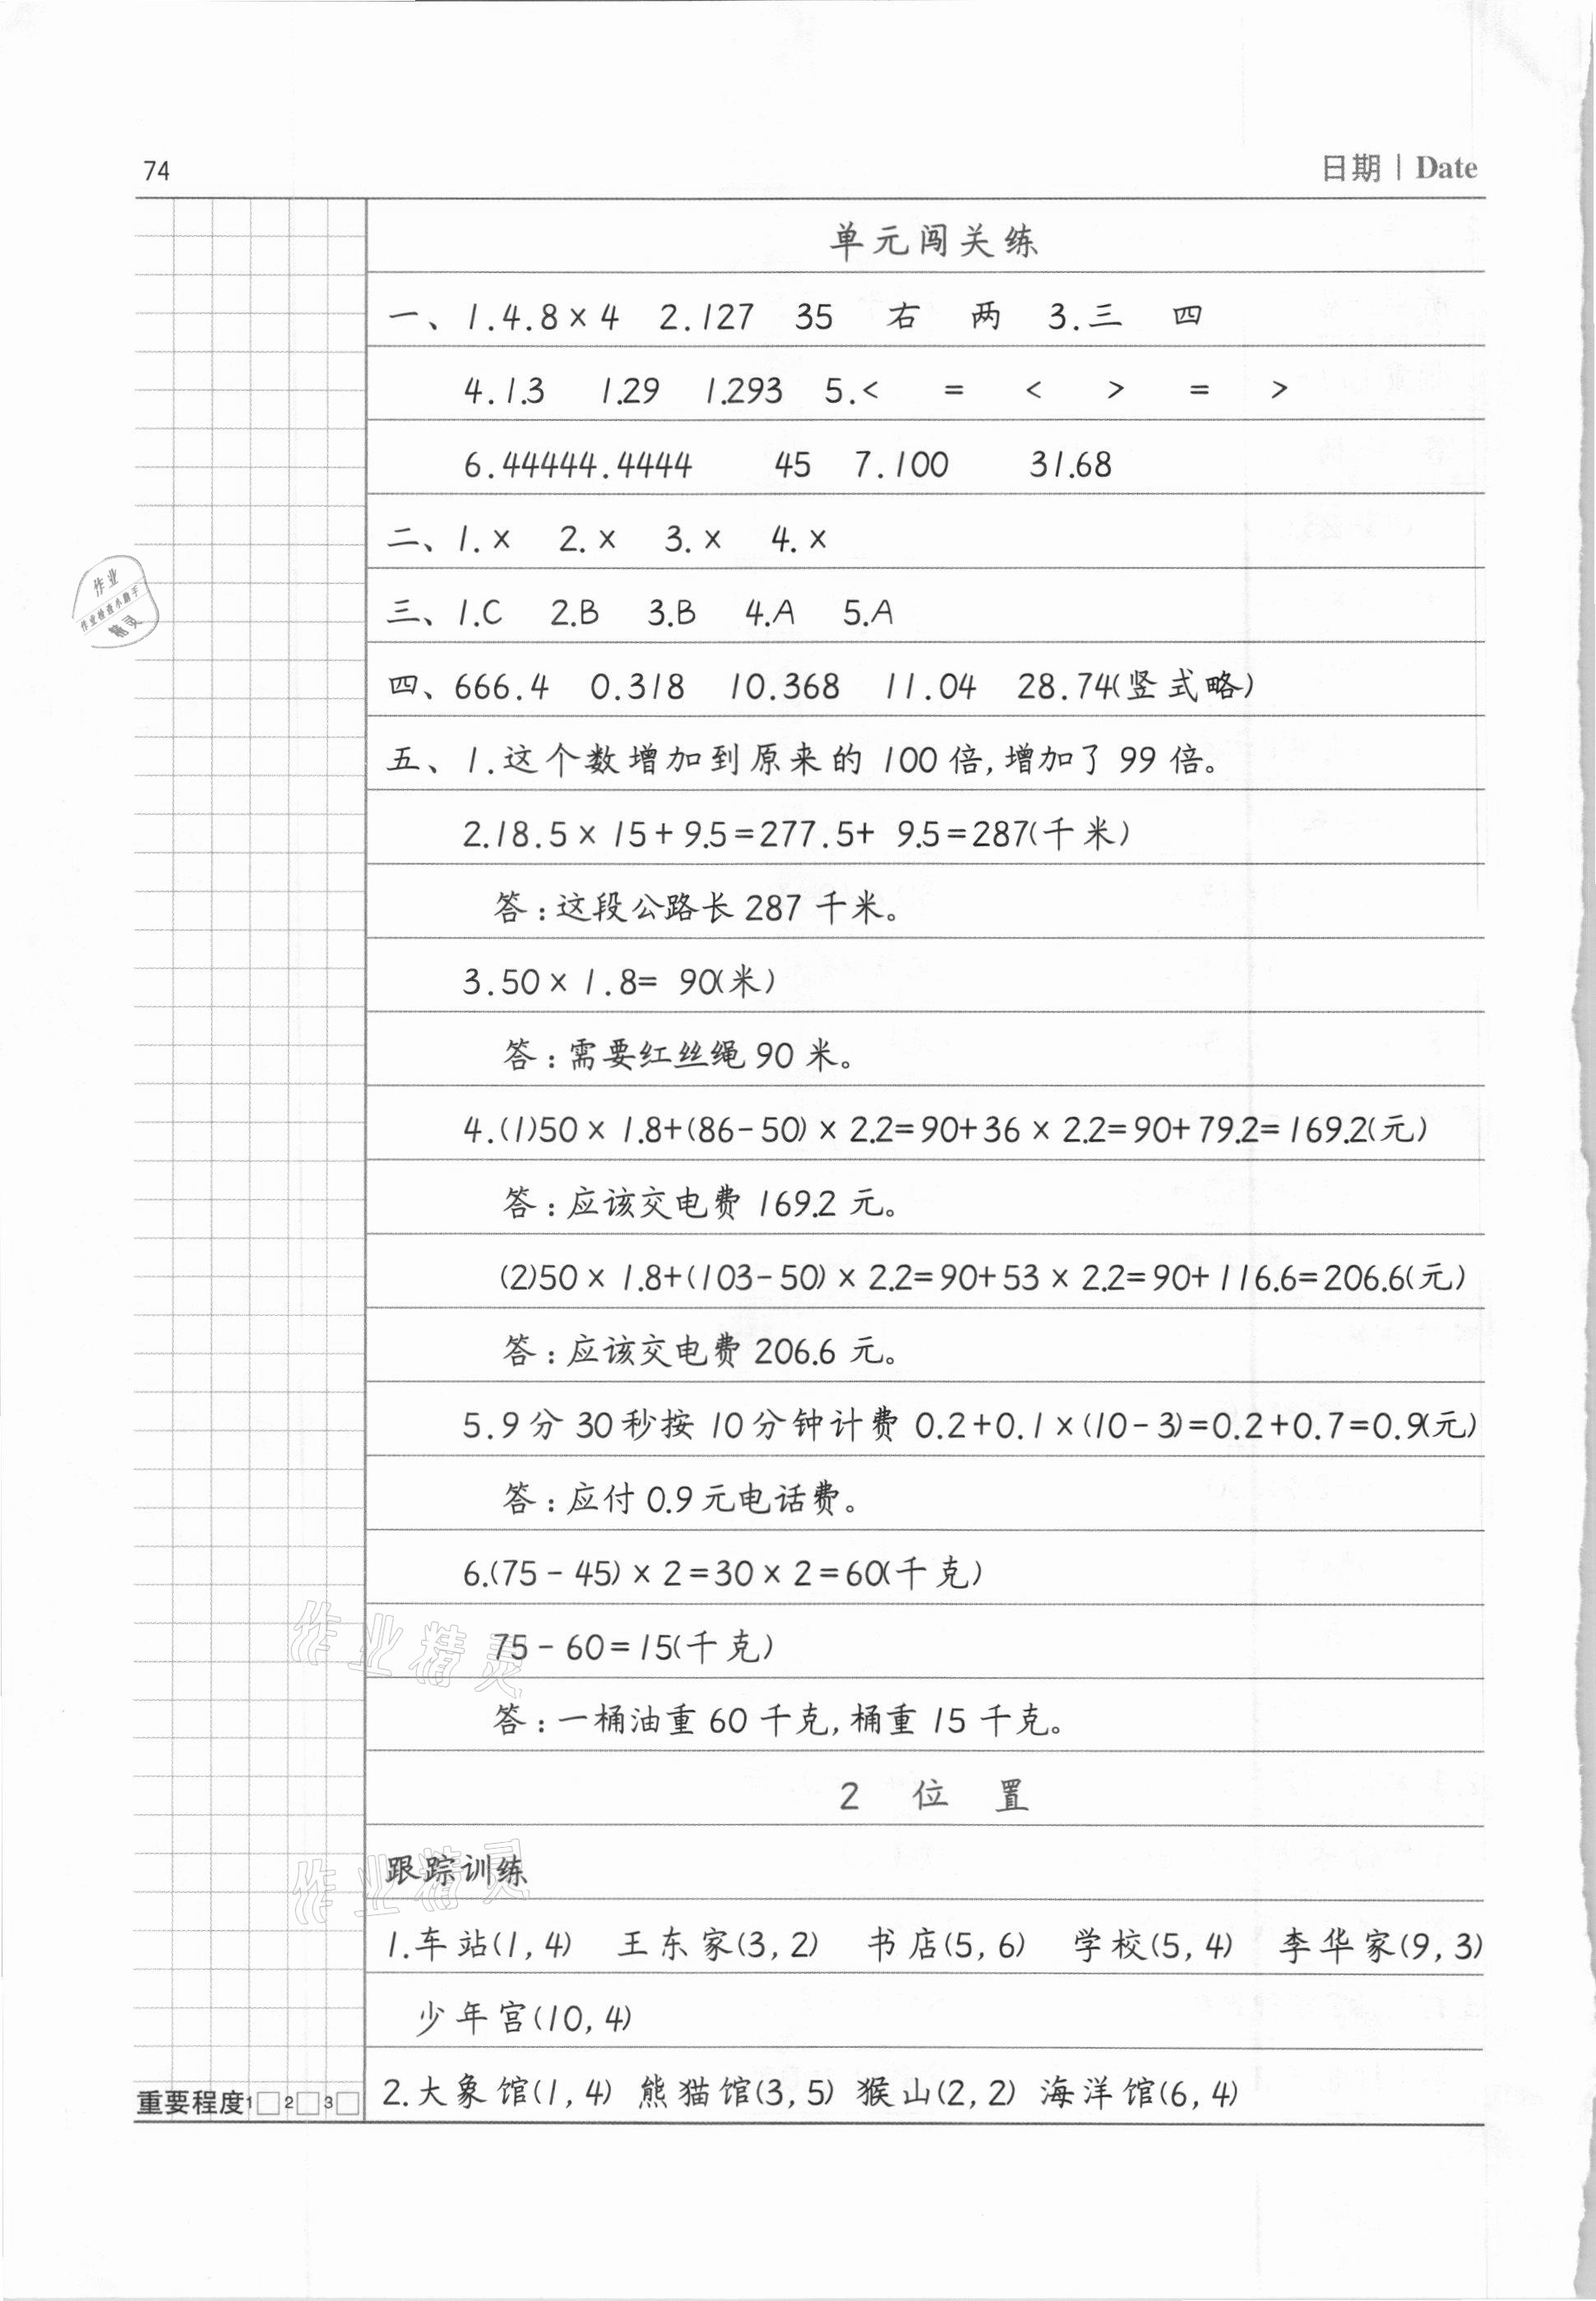 74
日期 | Date
单元闯关练
一、1.4.8×4 2.127 35 右 两 3.三 四
4.1.3 1.29 1.293 5.< = < > = >
6.44444.4444 45 7.100 31.68
二、1.× 2.× 3.× 4.×
三、1.C 2.B 3.B 4.A 5.A
四、666.4 0.318 10.368 11.04 28.74(竖式略)
五、1.这个数增加到原来的100倍,增加了99倍。
2.18.5×15+9.5=277.5+ 9.5=287(千米)
答:这段公路长287千米。
3.50×1.8= 90(米)
答:需要红丝绳90米。
4.(1)50×1.8+(86-50)×2.2=90+36×2.2=90+79.2=169.2(元)
答:应该交电费169.2元。
(2)50×1.8+(103-50)×2.2=90+53×2.2=90+116.6=206.6(元)
答:应该交电费206.6元。
5.9分30秒按10分钟计费 0.2+0.1×(10-3)=0.2+0.7=0.9(元)
答:应付0.9元电话费。
6.(75-45)×2=30×2=60(千克)
75-60=15(千克)
答:一桶油重60千克,桶重15千克。
2 位 置
跟踪训练
1.车站(1,4) 王东家(3,2) 书店(5,6) 学校(5,4) 李华家(9,3)
少年宫(10,4)
2.大象馆(1,4) 熊猫馆(3,5) 猴山(2,2) 海洋馆(6,4)
重要程度1□2□3□
作业
作业检查小助手
精灵
作业精灵
作业精灵